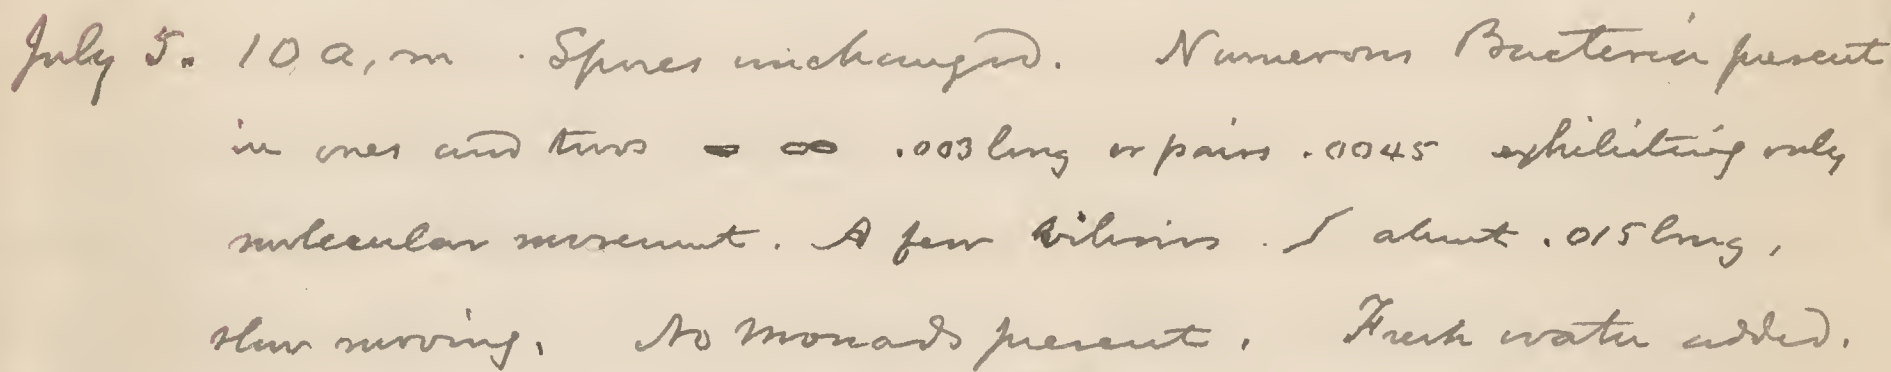 July 5. 10 a, m. Spores unchanged. Numerous Bacteria present
in ones and twos .003 long or pairs .0045 exhibiting only
molecular movement. A few vibrios. about .015 long,
slow moving. No Monads present. Fresh water added.